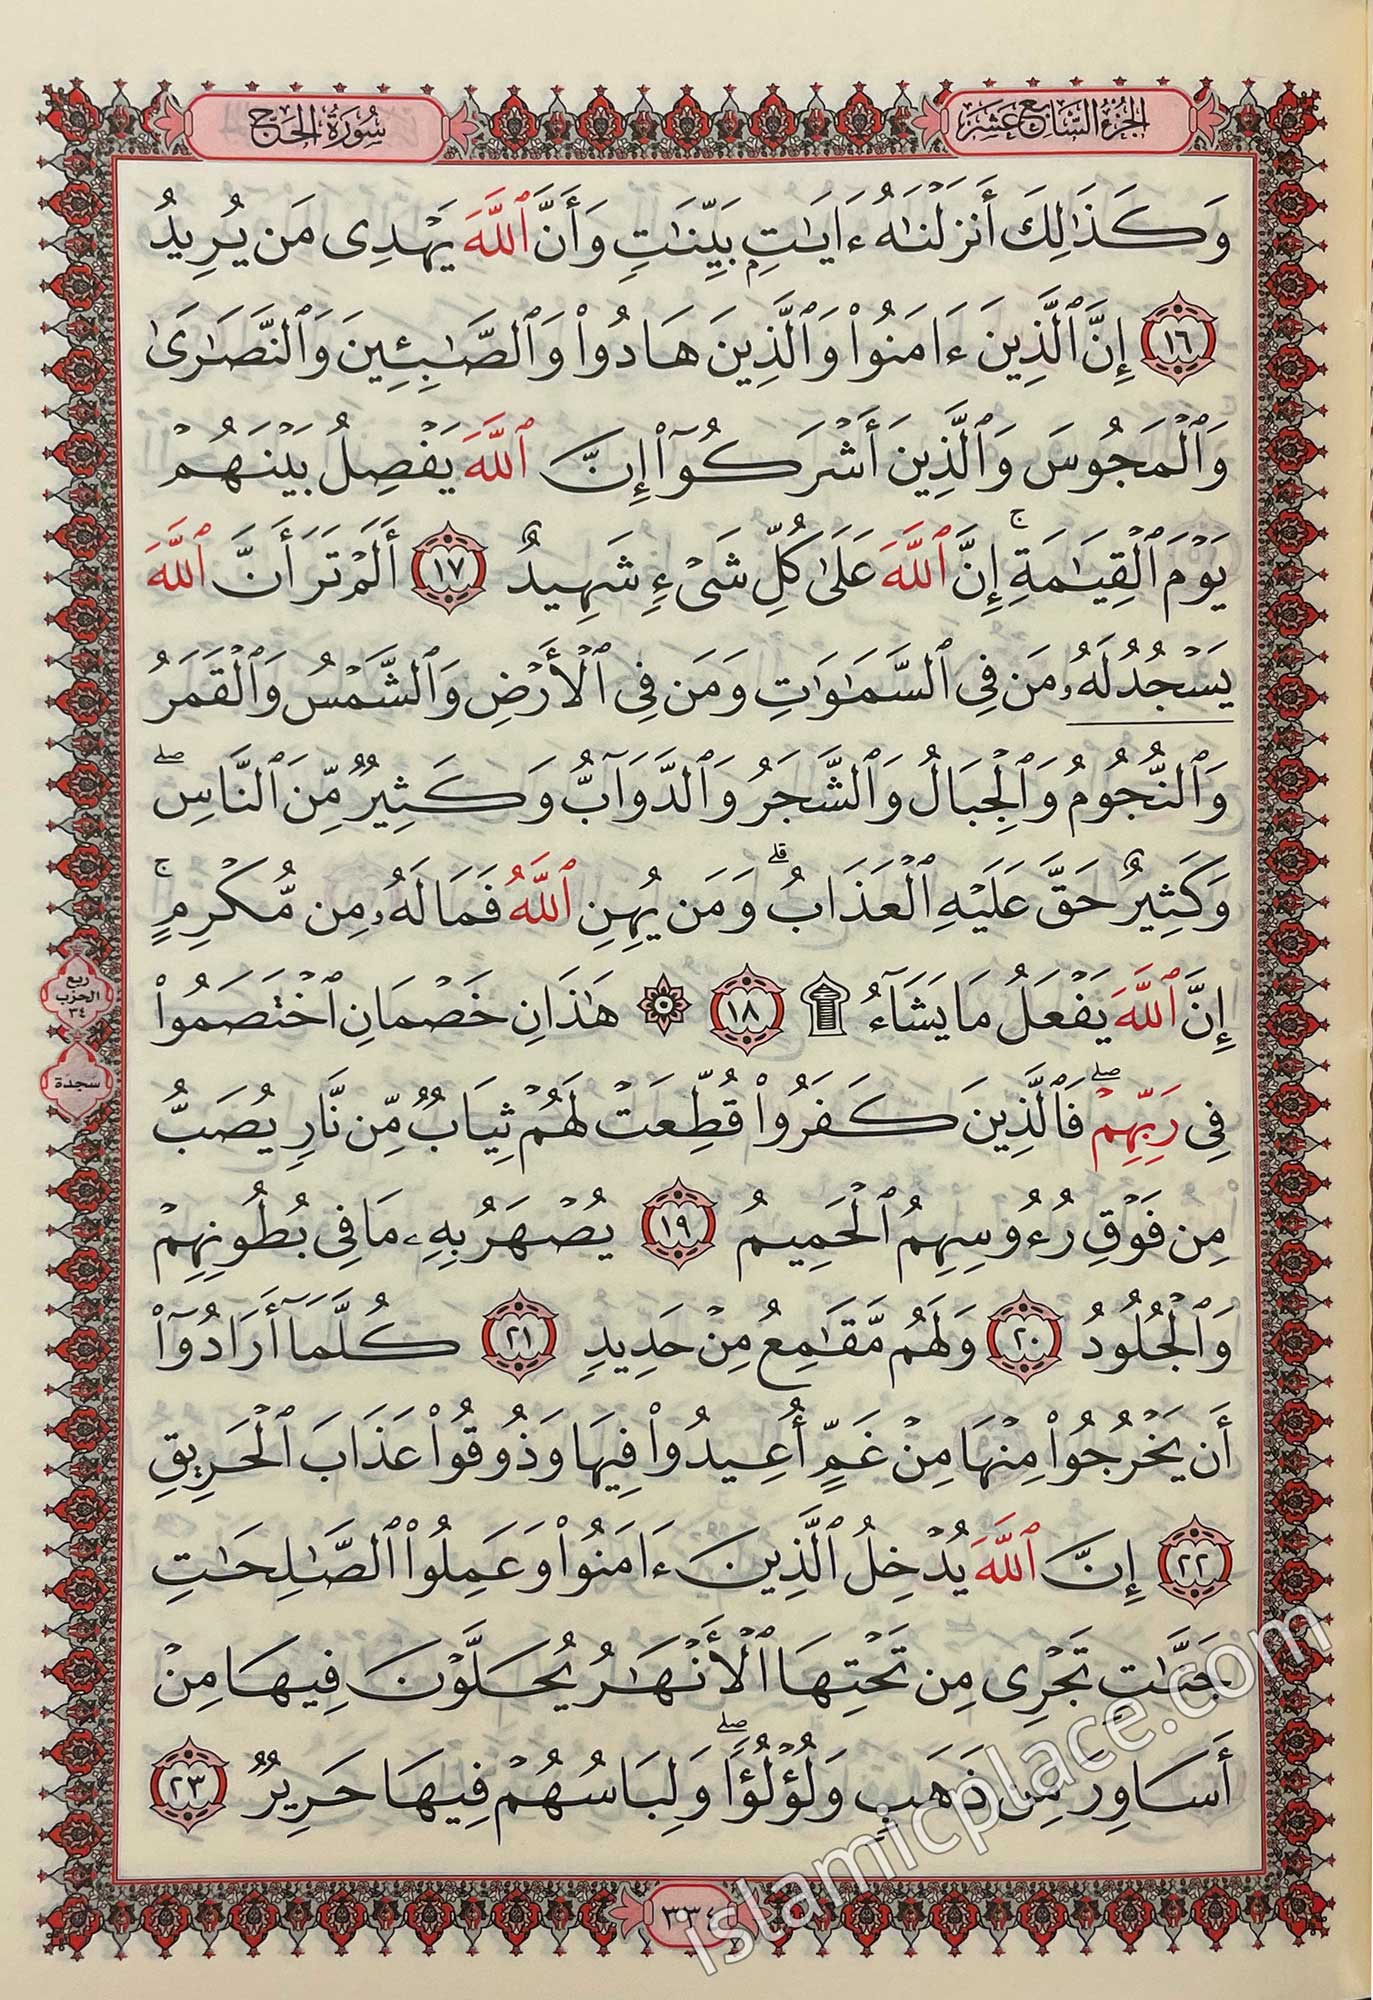 الجزء السابع عشر
سورة الحج
وَكَذَٰلِكَ أَنزَلۡنَٰهُ ءَايَٰتِۭ بَيِّنَٰتٖ وَأَنَّ ٱللَّهَ يَهۡدِي مَن يُرِيدُ
١٦ إِنَّ ٱلَّذِينَ ءَامَنُواْ وَٱلَّذِينَ هَادُواْ وَٱلصَّٰبِـِٔينَ وَٱلنَّصَٰرَىٰ
وَٱلۡمَجُوسَ وَٱلَّذِينَ أَشۡرَكُوٓاْ إِنَّ ٱللَّهَ يَفۡصِلُ بَيۡنَهُمۡ
يَوۡمَ ٱلۡقِيَٰمَةِۚ إِنَّ ٱللَّهَ عَلَىٰ كُلِّ شَيۡءٖ شَهِيدٌ ١٧ أَلَمۡ تَرَ أَنَّ ٱللَّهَ
يَسۡجُدُۤ لَهُۥۤ مَن فِي ٱلسَّمَٰوَٰتِ وَمَن فِي ٱلۡأَرۡضِ وَٱلشَّمۡسُ وَٱلۡقَمَرُ
وَٱلنُّجُومُ وَٱلۡجِبَالُ وَٱلشَّجَرُ وَٱلدَّوَآبُّ وَكَثِيرٞ مِّنَ ٱلنَّاسِۖ
وَكَثِيرٌ حَقَّ عَلَيۡهِ ٱلۡعَذَابُۗ وَمَن يُهِنِ ٱللَّهُ فَمَا لَهُۥ مِن مُّكۡرِمٍۚ
إِنَّ ٱللَّهَ يَفۡعَلُ مَا يَشَآءُ ۩ ١٨ ۞ هَٰذَانِ خَصۡمَانِ ٱخۡتَصَمُواْ
فِي رَبِّهِمۡۖ فَٱلَّذِينَ كَفَرُواْ قُطِّعَتۡ لَهُمۡ ثِيَابٞ مِّن نَّارٖ يُصَبُّ
مِن فَوۡقِ رُءُوسِهِمُ ٱلۡحَمِيمُ ١٩ يُصۡهَرُ بِهِۦ مَا فِي بُطُونِهِمۡ
وَٱلۡجُلُودُ ٢٠ وَلَهُم مَّقَٰمِعُ مِنۡ حَدِيدٖ ٢١ كُلَّمَآ أَرَادُوٓاْ
أَن يَخۡرُجُواْ مِنۡهَا مِنۡ غَمٍّ أُعِيدُواْ فِيهَا وَذُوقُواْ عَذَابَ ٱلۡحَرِيقِ
٢٢ إِنَّ ٱللَّهَ يُدۡخِلُ ٱلَّذِينَ ءَامَنُواْ وَعَمِلُواْ ٱلصَّٰلِحَٰتِ
جَنَّٰتٖ تَجۡرِي مِن تَحۡتِهَا ٱلۡأَنۡهَٰرُ يُحَلَّوۡنَ فِيهَا مِنۡ
أَسَاوِرَ مِن ذَهَبٖ وَلُؤۡلُؤٗاۖ وَلِبَاسُهُمۡ فِيهَا حَرِيرٞ ٢٣
ربع
الحزب
٣٤
سجدة
٣٣٤
islamicplace.com